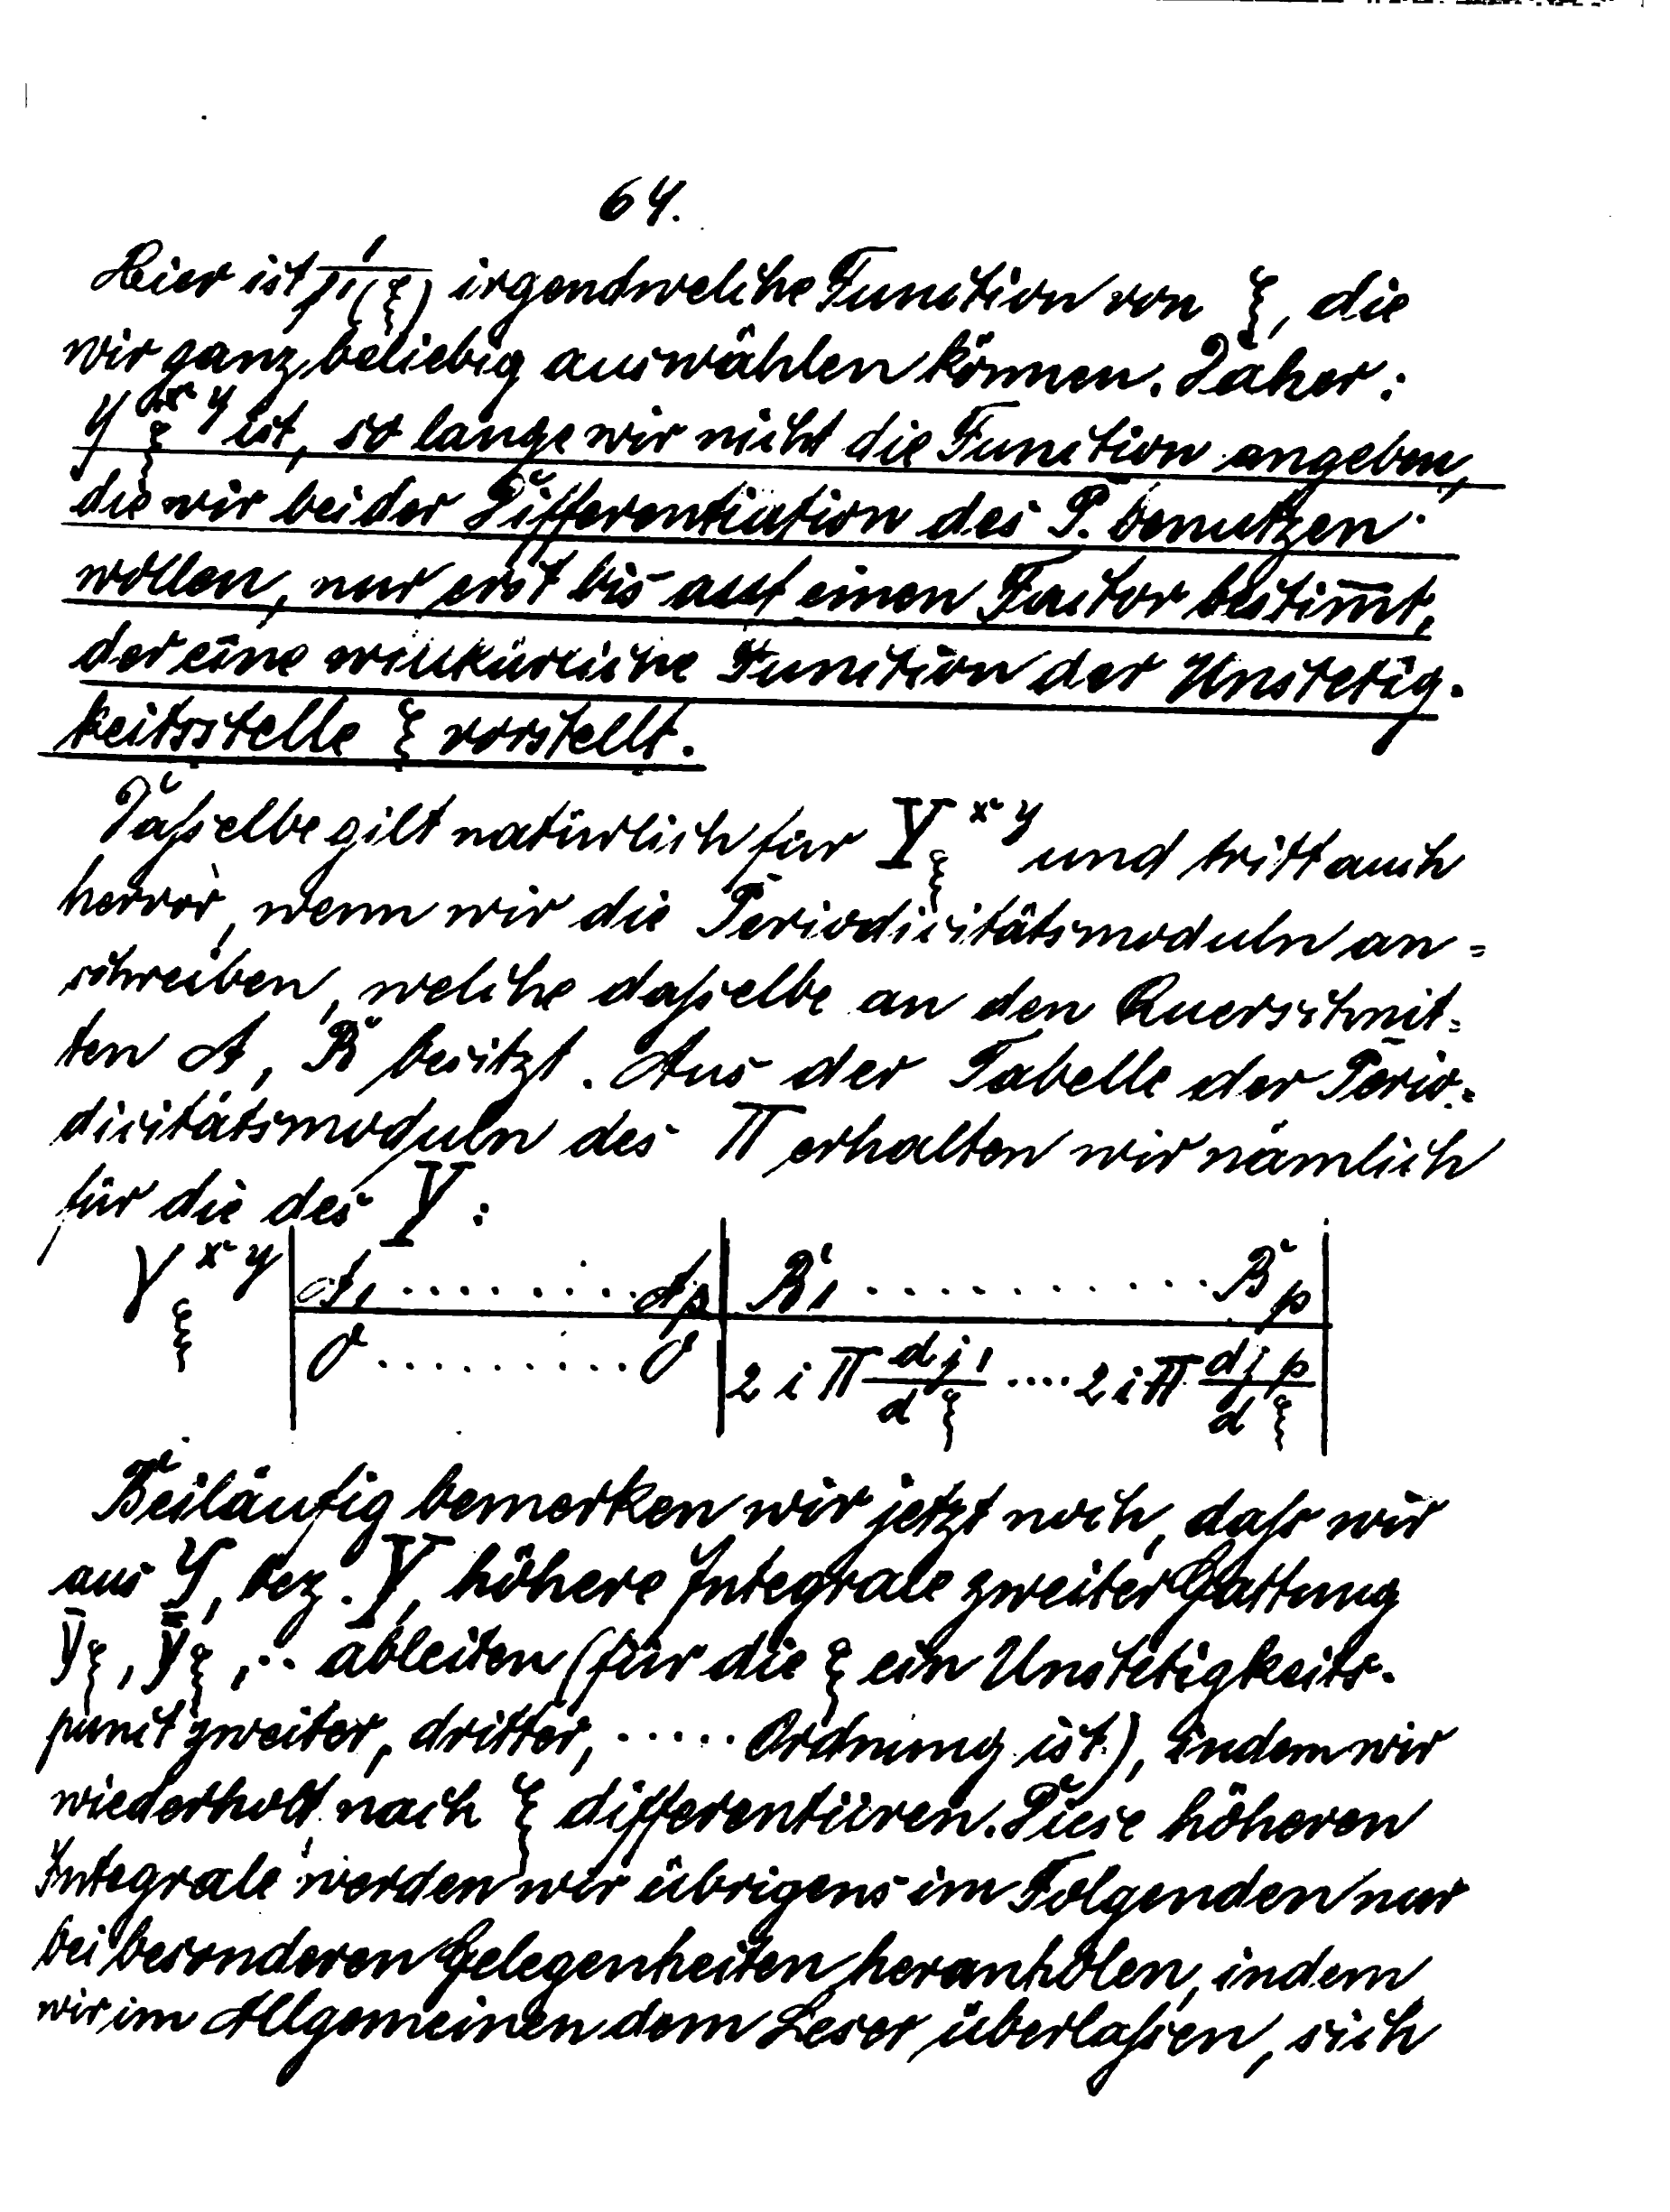 64.
Hier ist 1/f'(ξ) irgendwelche Function von ξ, die
wir ganz beliebig auswählen können. Daher:
Y^{xy}_ξ ist, so lange wir nicht die Function angeben,
die wir bei der Differentiation des P. benutzen
wollen, nur erst bis auf einen Factor bestim̄t,
der eine willkürliche Function der Unstetig-
keitsstelle ξ vorstellt.
Daſselbe gilt natürlich für Y^{xy}_ξ und tritt auch
hervor, wenn wir die Periodicitätsmoduln an=
schreiben, welche daſselbe an den Querschnit=
ten A, B besitzt. Aus der Tabelle der Perio=
dicitätsmoduln des Π erhalten wir nämlich
für die des Y:
Y^{xy}_ξ | A₁ ......... A_p | B₁ ............ B_p
0 ......... 0 | 2iπ dj₁/dξ .... 2iπ dj_p/dξ
Beiläufig bemerken wir jetzt noch, daſs wir
aus Y, bez. Y, höhere Integrale zweiter Gattung
Ȳ_ξ, Y̿_ξ, ... ableiten (für die ξ ein Unstetigkeits-
punct zweiter, dritter, ..... Ordnung ist), indem wir
wiederholt nach ξ differentiiren. Diese höheren
Integrale werden wir übrigens im Folgenden nur
bei besonderen Gelegenheiten heranholen, indem
wir im Allgemeinen dem Leser überlaſsen, sich